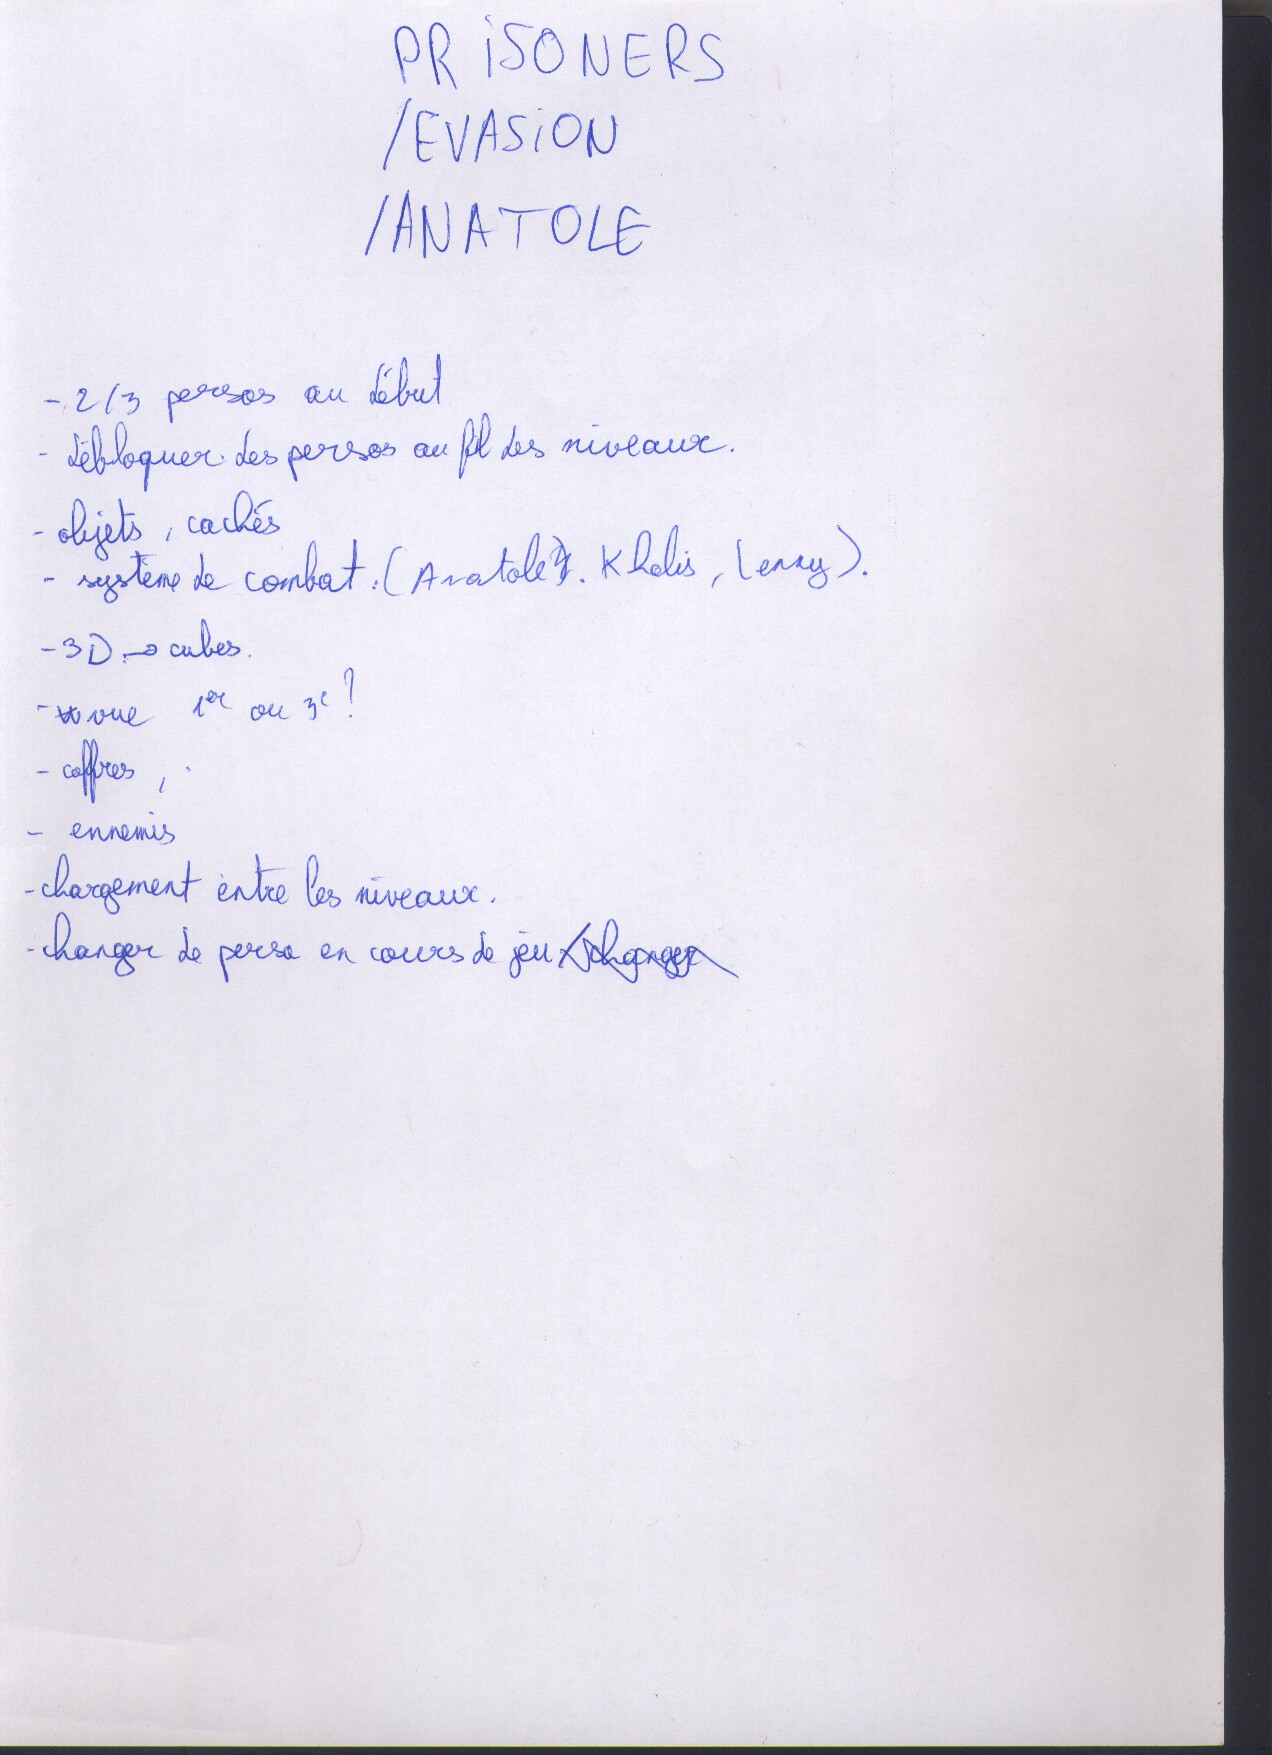 PRiSONERS
/EVASiON
/ANATOLE
- 2/3 persos au début
- débloquer des persos au fil des niveaux.
- objets, cachés
- système de combat : (Anatole, Khalis, Lenny).
- 3D → cubes.
- vue 1er ou 3e ?
- coffres,
- ennemis
- chargement entre les niveaux.
- changer de perso en cours de jeu